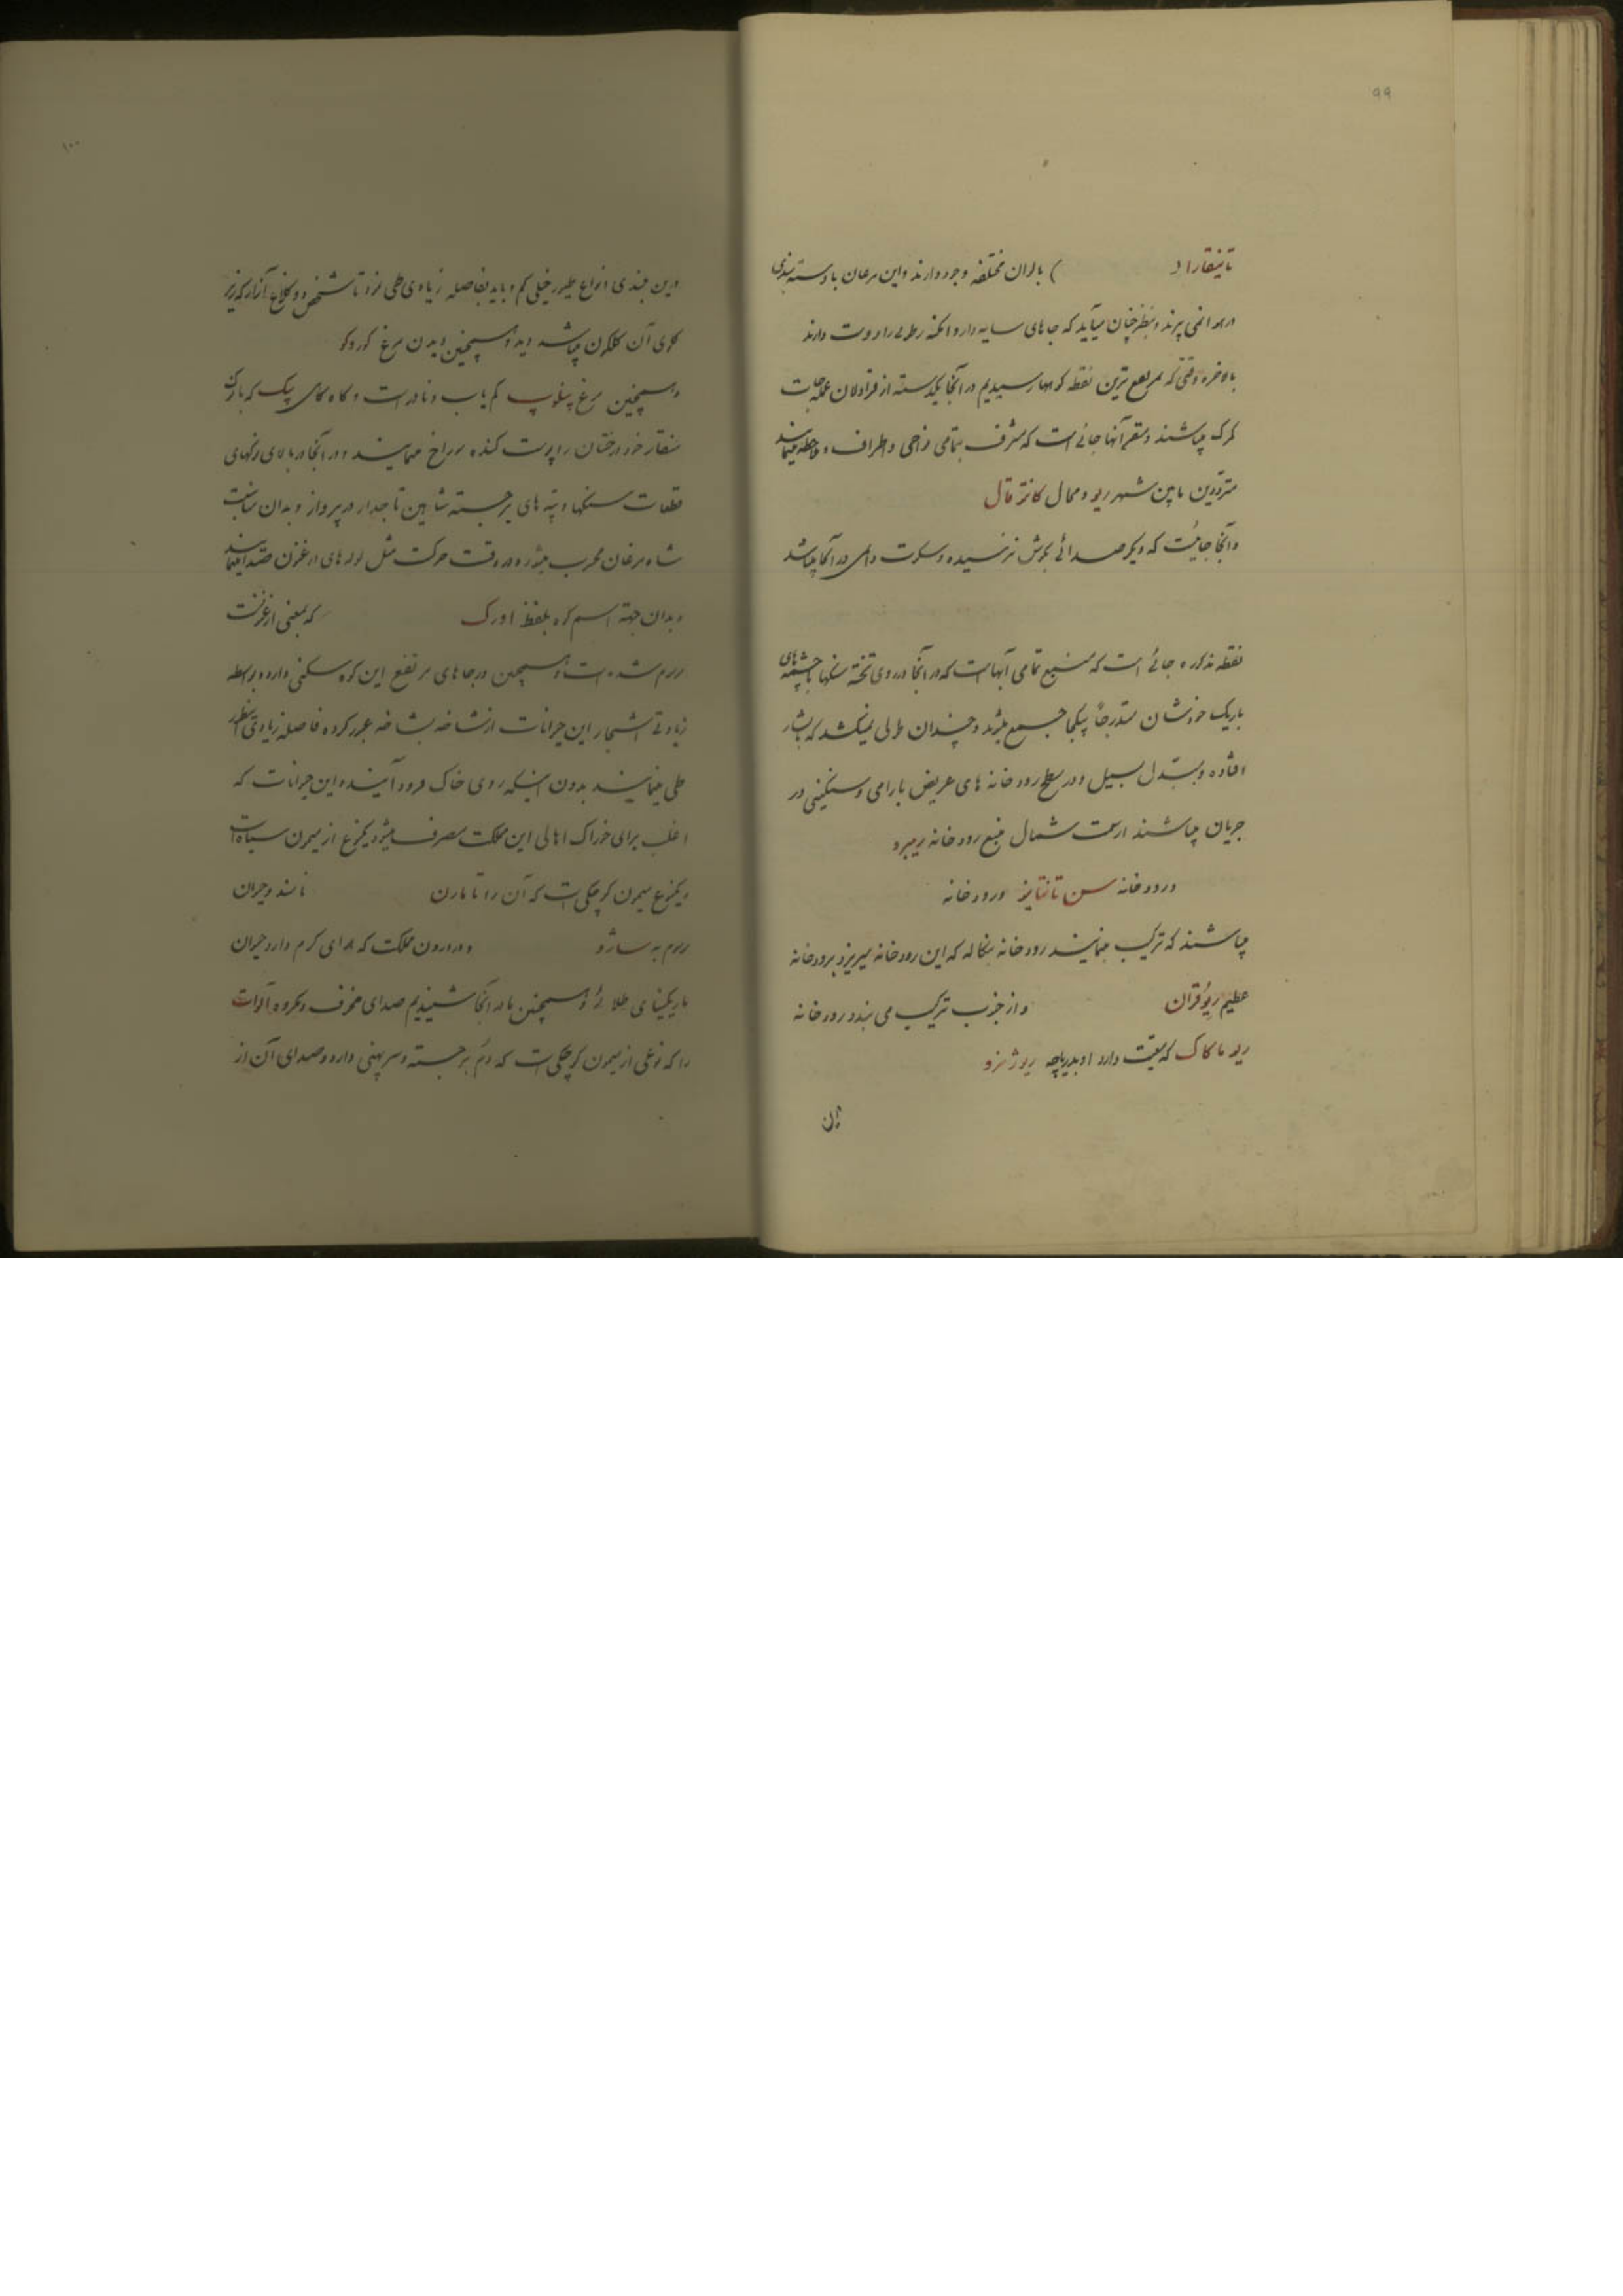 ۹۹
) بالوان مختلفه وجود دارند و این مرغان با دسته بندی
در هوا نمی پرند و بنظر چنان میآید که جاهای سایه دار و امکنه رطوبی را دوست دارند
بالاخره وقتی که بمرتفع ترین نقطه کوهها رسیدیم در آنجا یکدسته از قراولان عمله جات
گمرک میباشند و مقر آنها جائی است که مشرف بتمامی نواحی و اطراف و ملاحظه مینمایند
مترددین مابین شهر ریو و محال کانتو قال
و آنجا جائیست که دیگر صدائی بگوش نرسیده و سکوت دائمی در آنجا میباشد
نقطه مذکوره جائی است که منبع تمامی آبهاست که در آنجا در روی تخته سنگها با چشمه های
باریک خودشان متدرجاً بیکجا جمع میشوند و چندان طولی نمیکشد که بآبشار
افتاده و مبتدل بسیل و در سطح رودخانه های عریض بآرامی و سنگینی در
جریان میباشند از سمت شمال منبع رودخانه
و رودخانه سن و رودخانه
میباشند که ترکیب مینمایند رودخانه که این رودخانه میریزد برودخانه
عظیم و از جنوب ترکیب می بندد رودخانه
ریو ماکاک که معیت دارد او بدریاچه
این
۱۰۰
و این انواع طیور خیلی کم و باید بفاصله زیادی طی نمود تا شخص دو کلاغ آنرا که زیر
گلوی آن گلگون میباشد دید و همچنین دیدن مرغ
و همچنین مرغ پنلوپ کم یاب و نادر است و گاه گاهی پیک که با نوک
منقار خود درختان را پوست کنده سوراخ مینمایند و در آنجا در بالای
قطعات سنگها و تپه های برجسته شاهین تاجدار در پرواز و بدان مناسبت
شاه مرغان محسوب میشود و در وقت حرکت مثل لوله های ارغنون صدا مینمایند
و بدان جهة اسم کوه بلفظ اورک که بمعنی ارغنونست
موسوم شده است و همچنین در جاهای مرتفع این کوه سکنی دارد و بواسطه
زیادتی اشجار این حیوانات از شاخه بشاخه عبور کرده فاصله زیادی
طی مینمایند بدون اینکه روی خاک فرود آیند و این حیوانات که
اغلب برای خوراک اهالی این مملکت مصرف میشود یکنوع از میمون سیاه است
و یکنوع میمون کوچکی است که آن را نامند و حیوان
موسوم به و در درون مملکت که هوای گرم دارد حیوان
طلائی و همچنین ما در آنجا شنیدیم صدای و مکروه
را که نوعی از میمون کوچکی است که دم برجسته و سر پهنی دارد و صدای آن از